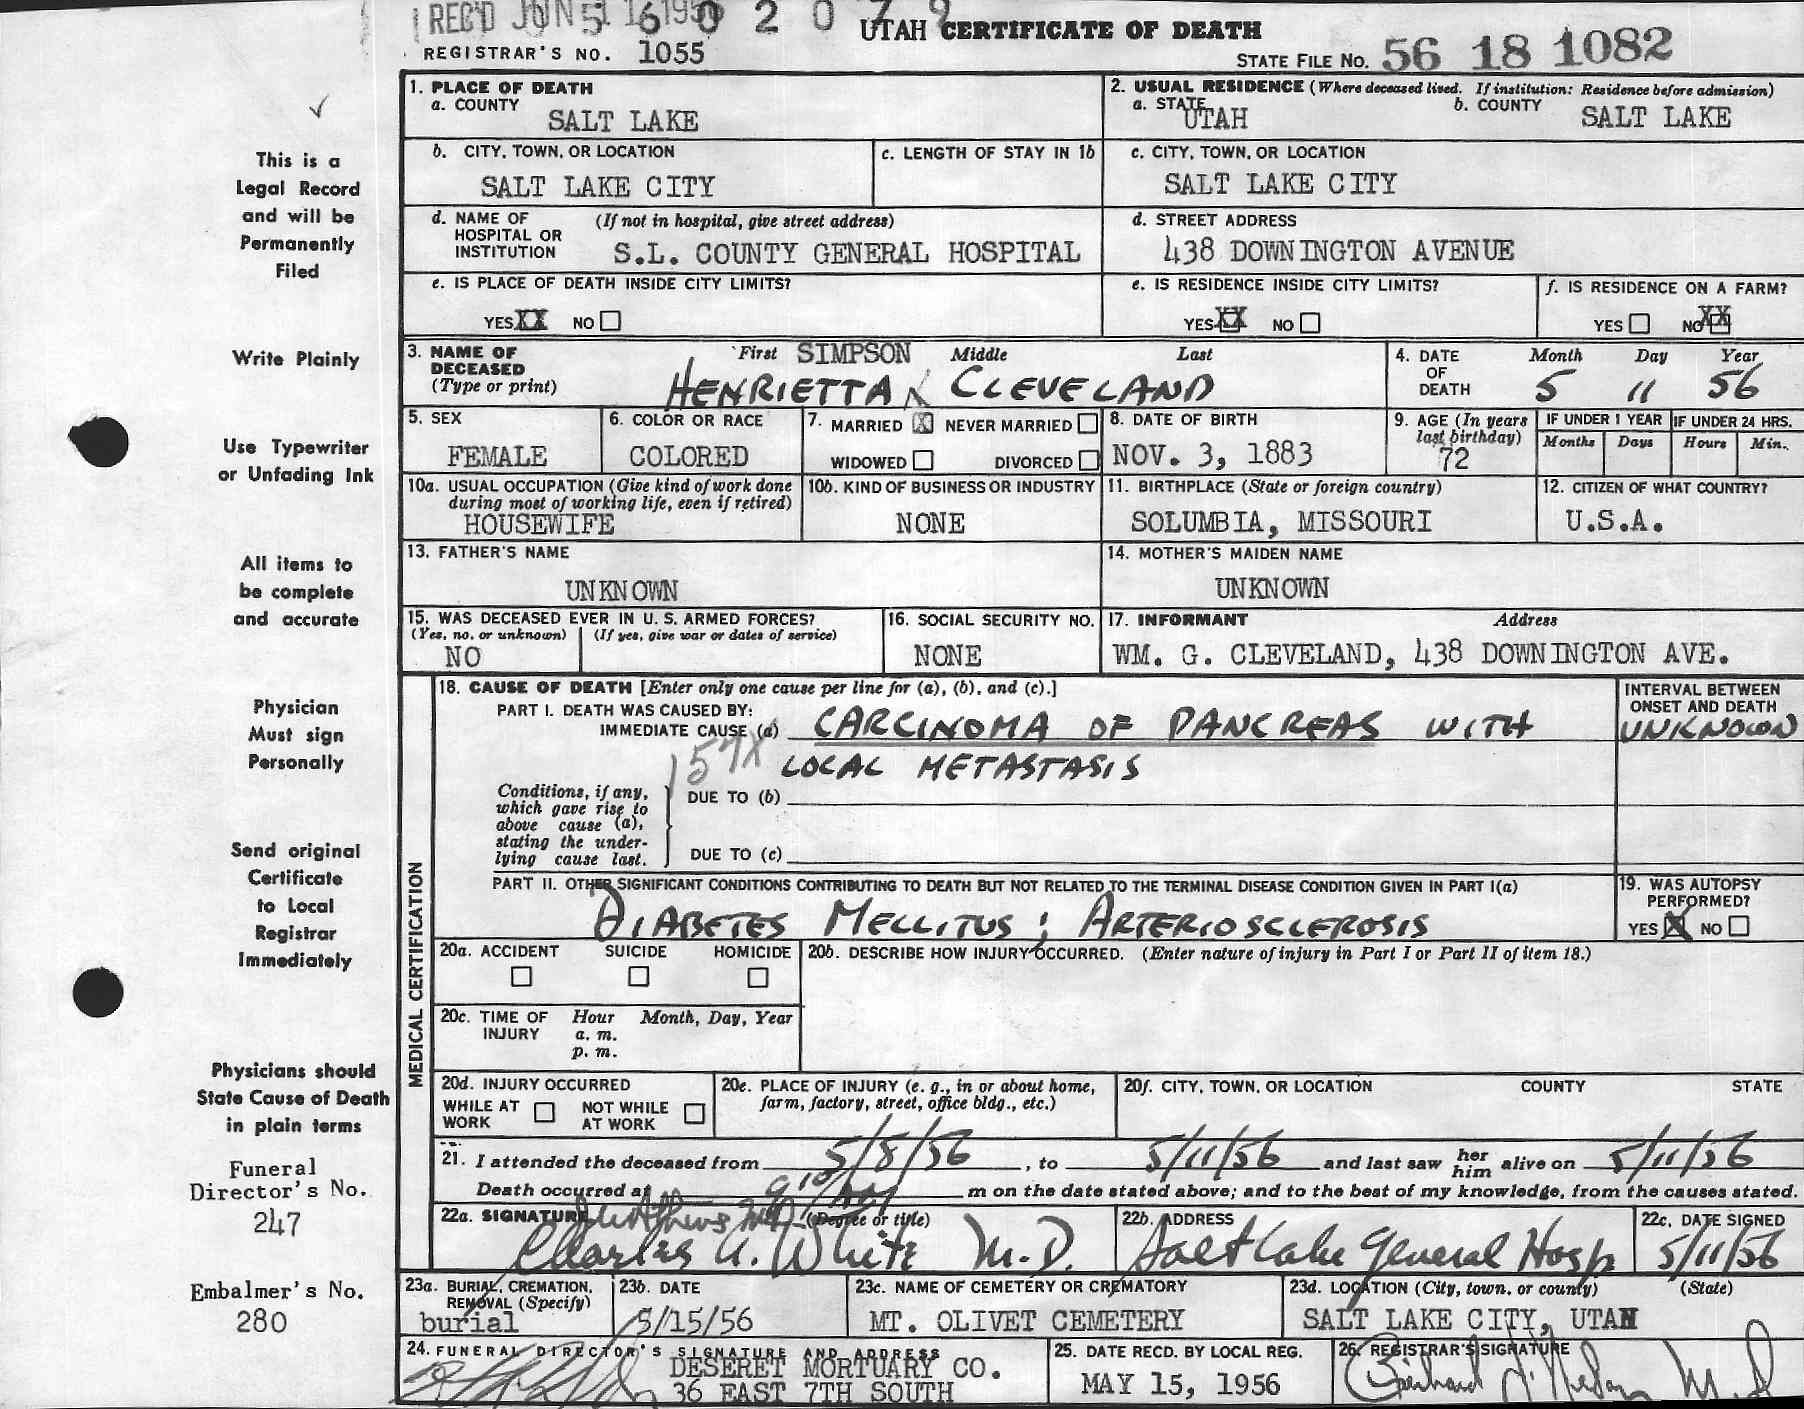 REC'D JUN 1 1956
5 6 0 2 0 7 9
UTAH CERTIFICATE OF DEATH
REGISTRAR'S NO. 1055
STATE FILE NO. 56 18 1082
This is a
Legal Record
and will be
Permanently
Filed
Write Plainly
Use Typewriter
or Unfading Ink
All items to
be complete
and accurate
Physician
Must sign
Personally
Send original
Certificate
to Local
Registrar
Immediately
Physicians should
State Cause of Death
in plain terms
Funeral
Director's No.
247
Embalmer's No.
280
1. PLACE OF DEATH
a. COUNTY
SALT LAKE
2. USUAL RESIDENCE (Where deceased lived. If institution: Residence before admission)
a. STATE UTAH b. COUNTY SALT LAKE
b. CITY, TOWN, OR LOCATION
SALT LAKE CITY
c. LENGTH OF STAY IN 1b
c. CITY, TOWN, OR LOCATION
SALT LAKE CITY
d. NAME OF HOSPITAL OR INSTITUTION (If not in hospital, give street address)
S.L. COUNTY GENERAL HOSPITAL
d. STREET ADDRESS
438 DOWNINGTON AVENUE
e. IS PLACE OF DEATH INSIDE CITY LIMITS?
YES XX NO
e. IS RESIDENCE INSIDE CITY LIMITS?
YES XX NO
f. IS RESIDENCE ON A FARM?
YES NO XX
3. NAME OF DECEASED (Type or print)
First SIMPSON Middle Last
HENRIETTA CLEVELAND
4. DATE OF DEATH
Month Day Year
5 11 56
5. SEX
FEMALE
6. COLOR OR RACE
COLORED
7. MARRIED X NEVER MARRIED
WIDOWED DIVORCED
8. DATE OF BIRTH
NOV. 3, 1883
9. AGE (In years last birthday)
72
IF UNDER 1 YEAR IF UNDER 24 HRS.
Months Days Hours Min.
10a. USUAL OCCUPATION (Give kind of work done during most of working life, even if retired)
HOUSEWIFE
10b. KIND OF BUSINESS OR INDUSTRY
NONE
11. BIRTHPLACE (State or foreign country)
SOLUMBIA, MISSOURI
12. CITIZEN OF WHAT COUNTRY?
U.S.A.
13. FATHER'S NAME
UNKNOWN
14. MOTHER'S MAIDEN NAME
UNKNOWN
15. WAS DECEASED EVER IN U. S. ARMED FORCES?
(Yes, no. or unknown) (If yes, give war or dates of service)
NO
16. SOCIAL SECURITY NO.
NONE
17. INFORMANT Address
WM. G. CLEVELAND, 438 DOWNINGTON AVE.
MEDICAL CERTIFICATION
18. CAUSE OF DEATH [Enter only one cause per line for (a), (b), and (c).]
PART I. DEATH WAS CAUSED BY:
IMMEDIATE CAUSE (a) CARCINOMA OF PANCREAS WITH
157X LOCAL METASTASIS
INTERVAL BETWEEN ONSET AND DEATH
UNKNOWN
Conditions, if any, which gave rise to above cause (a), stating the underlying cause last.
DUE TO (b)
DUE TO (c)
PART II. OTHER SIGNIFICANT CONDITIONS CONTRIBUTING TO DEATH BUT NOT RELATED TO THE TERMINAL DISEASE CONDITION GIVEN IN PART I(a)
DIABETES MELLITUS; ARTERIOSCLEROSIS
19. WAS AUTOPSY PERFORMED?
YES X NO
20a. ACCIDENT SUICIDE HOMICIDE
20b. DESCRIBE HOW INJURY OCCURRED. (Enter nature of injury in Part I or Part II of item 18.)
20c. TIME OF INJURY Hour Month, Day, Year
a. m.
p. m.
20d. INJURY OCCURRED
WHILE AT WORK NOT WHILE AT WORK
20e. PLACE OF INJURY (e. g., in or about home, farm, factory, street, office bldg., etc.)
20f. CITY, TOWN, OR LOCATION COUNTY STATE
21. I attended the deceased from 5/8/56, to 5/11/56 and last saw her him alive on 5/11/56
Death occurred at 9:10 AM m on the date stated above; and to the best of my knowledge, from the causes stated.
22a. SIGNATURE (Degree or title)
Charles A. White M.D.
22b. ADDRESS
Salt Lake General Hosp
22c. DATE SIGNED
5/11/56
23a. BURIAL, CREMATION, REMOVAL (Specify)
burial
23b. DATE
5/15/56
23c. NAME OF CEMETERY OR CREMATORY
MT. OLIVET CEMETERY
23d. LOCATION (City, town. or county) (State)
SALT LAKE CITY, UTAH
24. FUNERAL DIRECTOR'S SIGNATURE AND ADDRESS
DESERET MORTUARY CO.
36 EAST 7TH SOUTH
25. DATE RECD. BY LOCAL REG.
MAY 15, 1956
26. REGISTRAR'S SIGNATURE